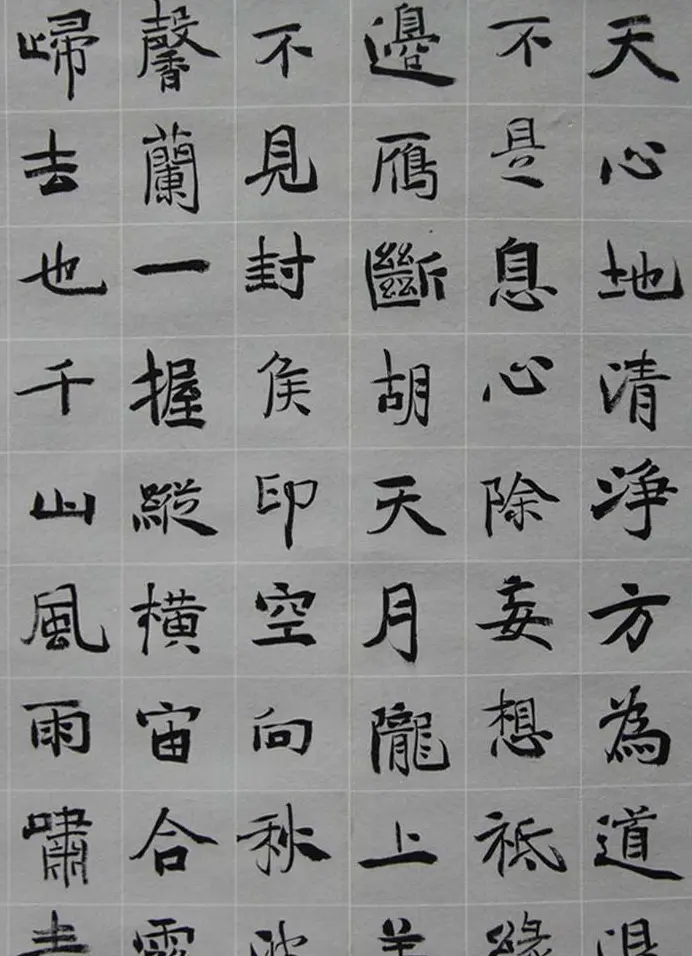 天心地清淨方為道
不是息心除妄想祗緣
邊鴈斷胡天月隴上
不見封侯印空向秋
馨蘭一握縱橫宙合
歸去也千山風雨嘯